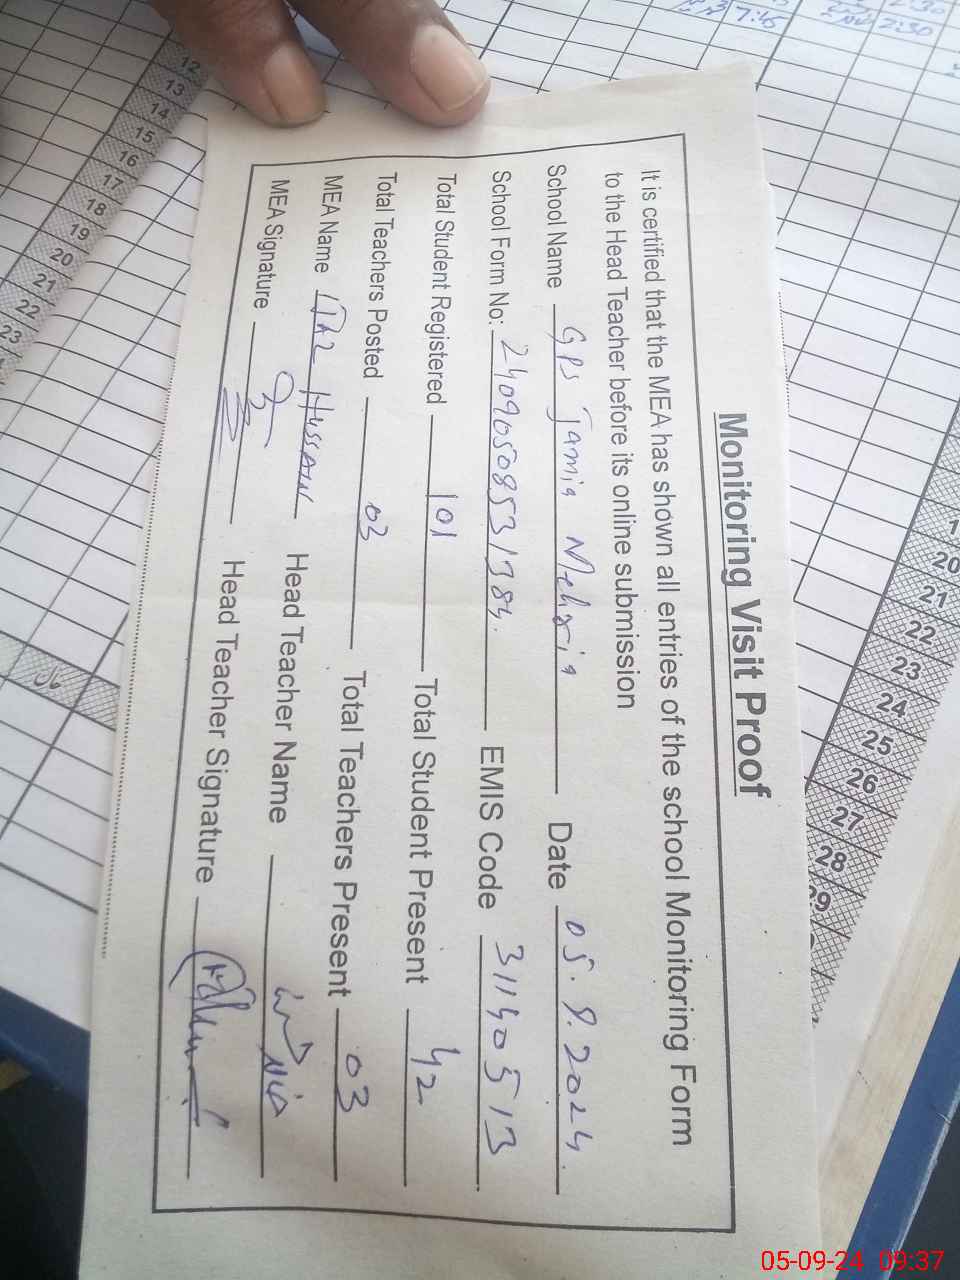 Monitoring Visit Proof
It is certified that the MEA has shown all entries of the school Monitoring Form
to the Head Teacher before its online submission
School Name GPS Jamia Mehria Date 05.9.2024.
School Form No: 24090508531384. EMIS Code 31140513
Total Student Registered 101 Total Student Present 42
Total Teachers Posted 03 Total Teachers Present 03
MEA Name HUSSAIN Head Teacher Name
MEA Signature Head Teacher Signature
12
13
14
15
16
17
18
19
20
21
22
23
20
21
22
23
24
25
26
27
28
7:45
2:30
2:30
05-09-24 09:37